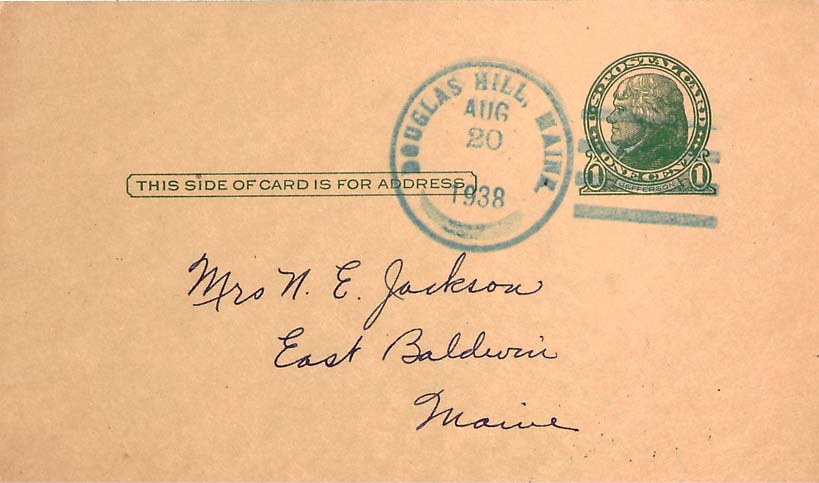 DOUGLAS HILL, MAINE
AUG
20
1938
U.S. POSTAL CARD
ONE CENT
1 JEFFERSON 1
THIS SIDE OF CARD IS FOR ADDRESS
Mrs N. E. Jackson
East Baldwin
Maine